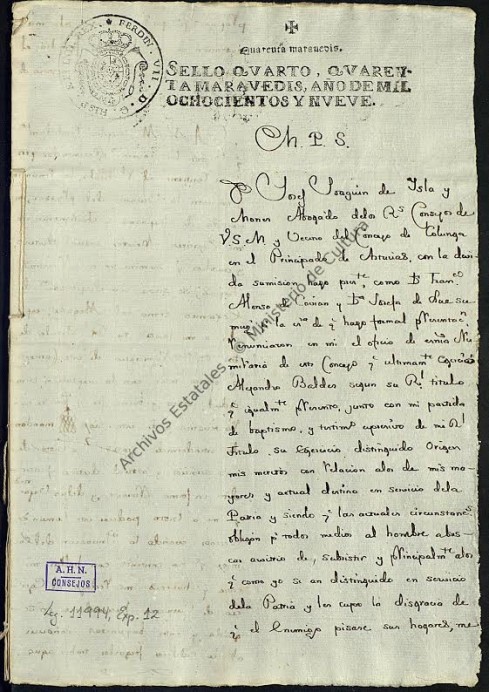 FERDIN. VII. D. G. HISP. ET IND. REX.
Quarenta maravedis.
SELLO QVARTO, QVAREN-
TA MARAVEDIS, AÑO DE MIL
OCHOCIENTOS Y NVEVE.
M. P. S.
Dn Josef Joaquin de Isla y
Mones Abogado delos Rs Consejos de
V.S.M. y Vecino del Concejo de Colunga
en el Principado de Asturias, con la devi-
da sumision hago preste, como Dn Franco
Alonso de Covian y Da Josefa de su
muger la de q hago formal
renunciaron en mi el oficio de Nu-
merario de este Concejo q ultimamte egercio
Alejandro Baldes segun su Rl titulo
q igualmte presento, junto con mi partida
de baptismo, y
titulo, su egercicio, distinguido Origen
mis meritos con relacion alos de mis ma-
yores y actual destino en servicio dela
Patria y siendo q las actuales circunstans
obligan p todos medios al hombre a bus-
car arvitrio de, subsistir y principalmte alos
q como yo se an distinguido en servicio
dela Patria y les cupo la disgracia de
q el Enemigo pisase sus hogares, me
Archivos Estatales © Ministerio de Cultura
A.H.N.
CONSEJOS
Leg. 11994, Exp. 12